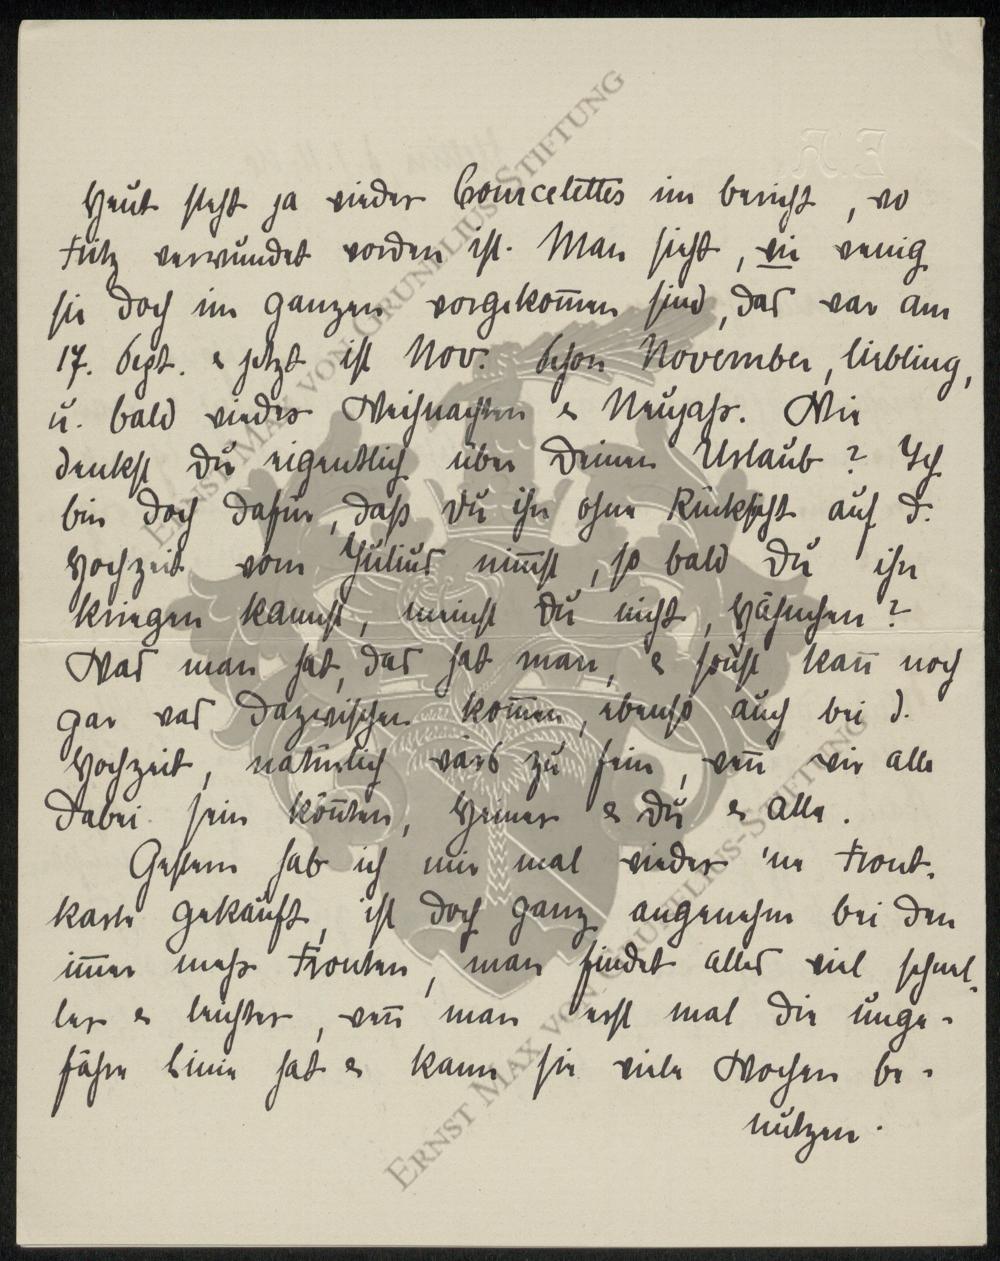 Heut steht ja wieder Courcelettes im bericht, wo
Fritz verwundet worden ist. Man sieht, wie wenig
sie doch im ganzen vorgekom̅en sind, das war am
17. Sept. & jetzt ist Nov. Schon November, liebling,
u. bald wieder Weihnachten & Neujahr. Wie
denkst Du eigentlich über Deinen Urlaub? Ich
bin doch dafür, daß Du ihn ohne Rücksicht auf d.
Hochzeit vom Julius nim̅st, so bald Du ihn
kriegen kannst, meinst Du nicht, Hähnchen?
Was man hat, das hat man, & sonst kan̅ noch
gar was dazwischen kom̅en, ebenso auch bei d.
Hochzeit, natürlich wärs zu fein, wen̅ wir alle
dabei sein kön̅ten, Heiner & Du & alle.
Gestern hab ich mir mal wieder 'ne Front-
karte gekauft, ist doch ganz angenehm bei den
im̅er mehr Fronten, man findet alles viel schnel-
ler & leichter, wen̅ man erst mal die unge-
fähre Linie hat & kann sie viele Wochen be-
nutzen.
E.H.
ERNST MAX VON GRUNELIUS-STIFTUNG
ERNST MAX VON GRUNELIUS-STIFTUNG